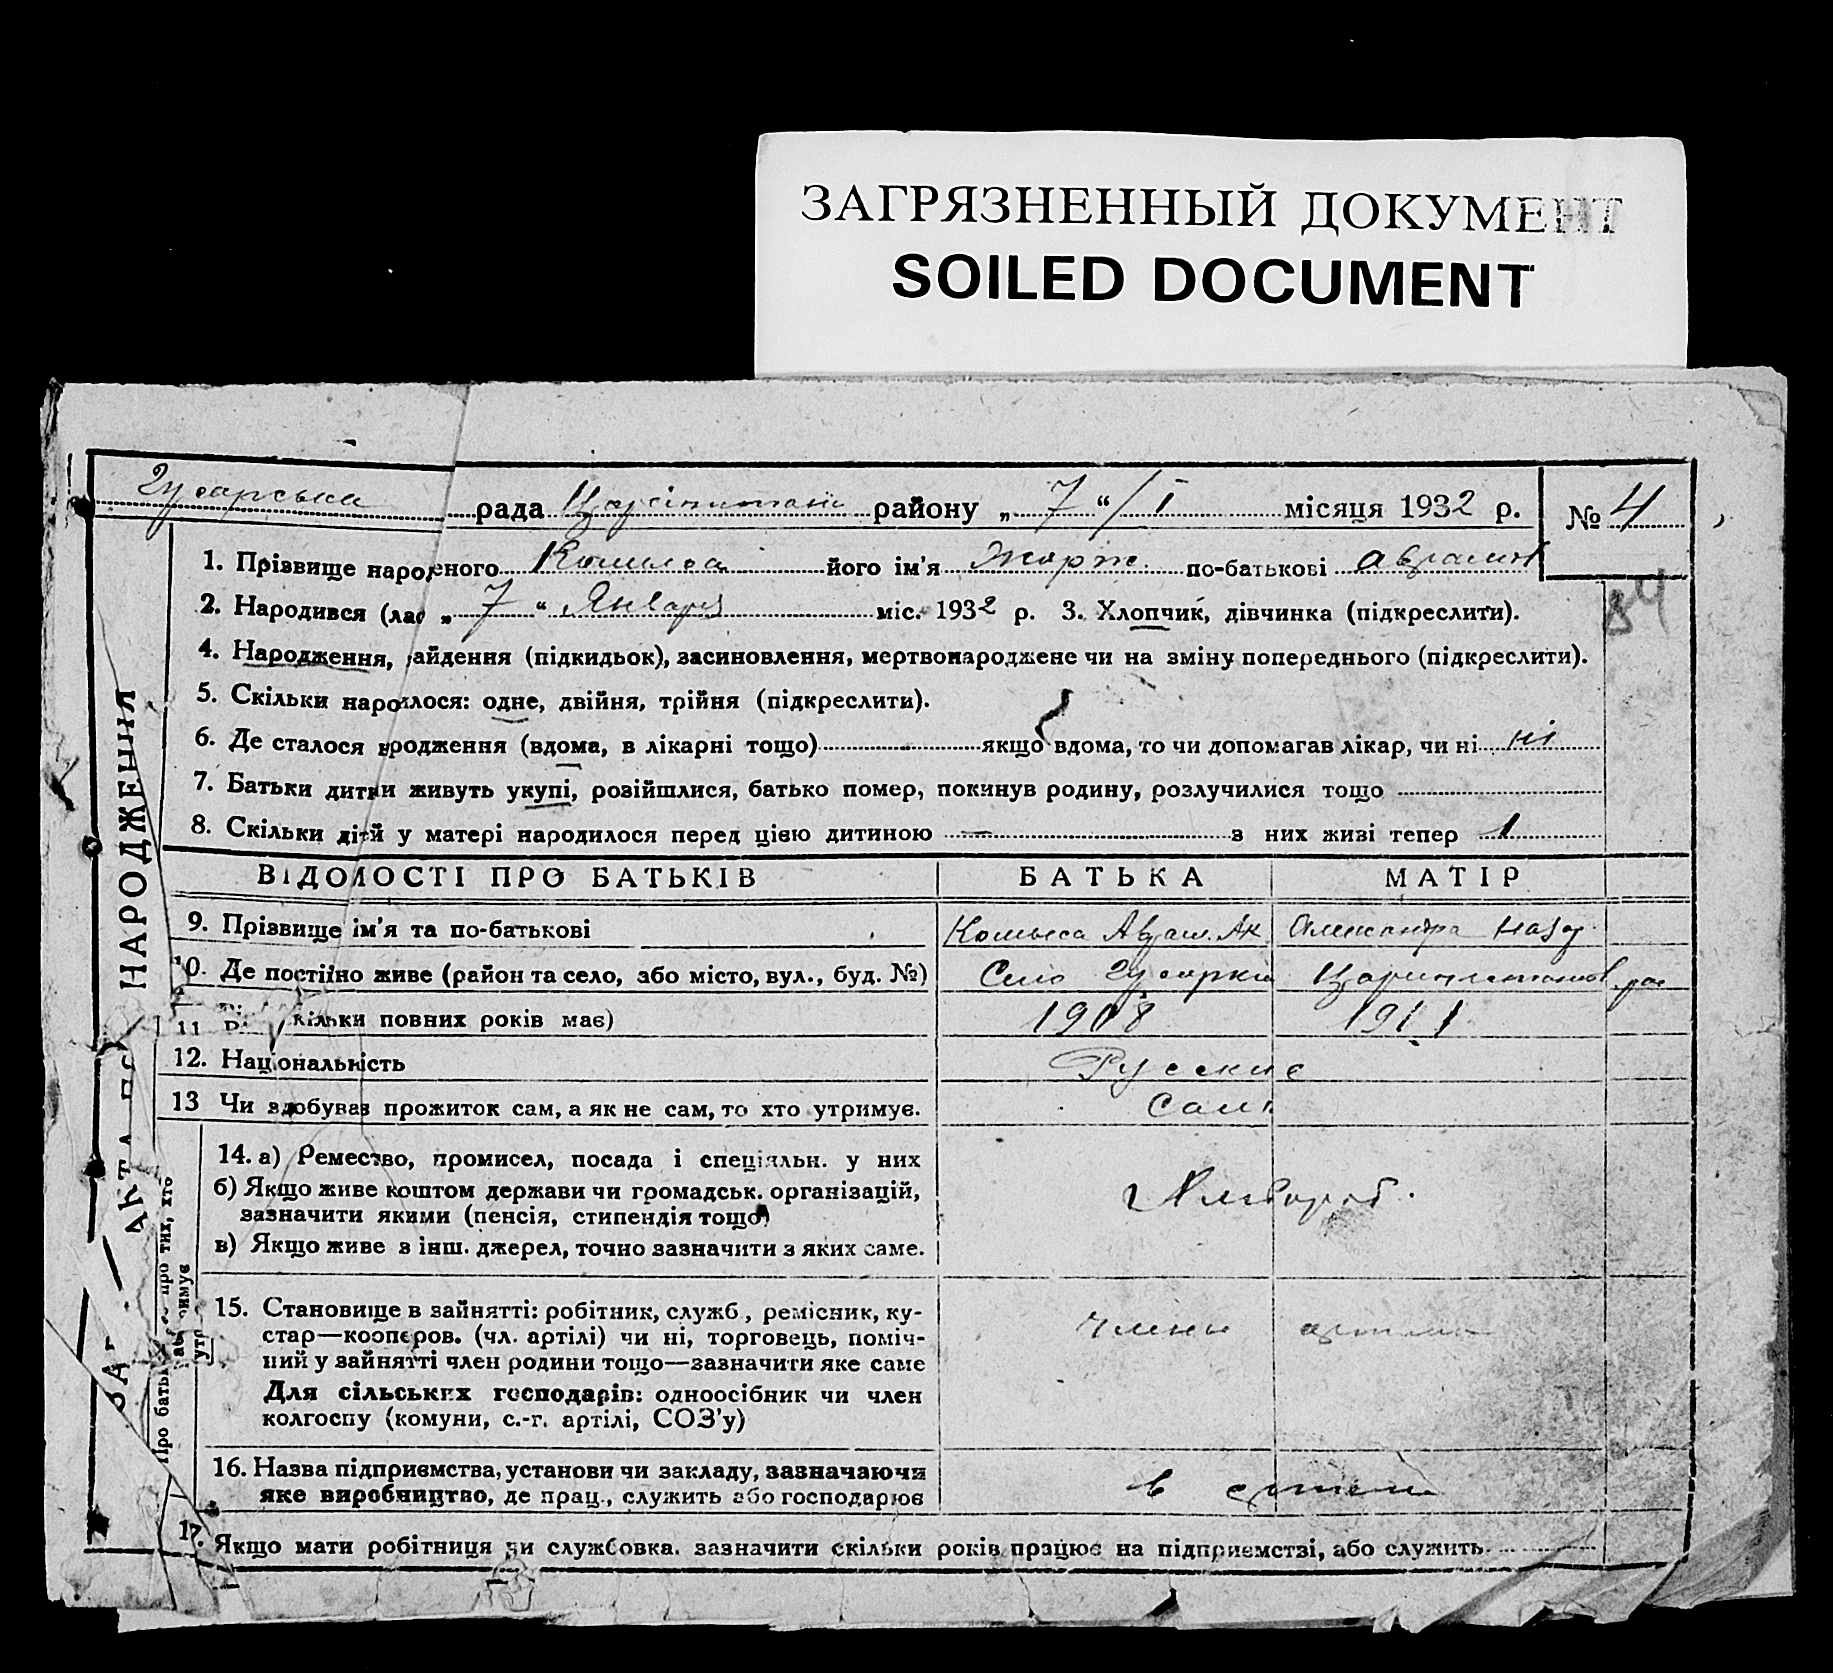 ЗАГРЯЗНЕННЫЙ ДОКУМЕНТ
SOILED DOCUMENT
Гусарська рада района „ 7 “ / I місяця 1932 р. № 4
1. Прізвище народженого його ім'я Жорж по-батькові
84
2. Народився (лас „ 7 “ Января міс. 1932 р. 3. Хлопчик, дівчинка (підкреслити).
4. Народження, найдення (підкидьок), засиновлення, мертвонароджене чи на зміну попереднього (підкреслити).
5. Скільки народилося: одне, двійня, трійня (підкреслити).
6. Де сталося народження (вдома, в лікарні тощо) якщо вдома, то чи допомагав лікар, чи ні ні
7. Батьки дитини живуть укупі, розійшлися, батько помер, покинув родину, розлучилися тощо
8. Скільки дітей у матері народилося перед цією дитиною — з них живі тепер 1
ВІДОМОСТІ ПРО БАТЬКІВ БАТЬКА МАТІР
9. Прізвище ім'я та по-батькові Александра
10. Де постійно живе (район та село, або місто, вул., буд. №) Село Гусарка
11 кільки повних років має) 1908 1911
12. Національність Русские
13 Чи здобуває прожиток сам, а як не сам, то хто утримує. Сами
14. а) Ремество, промисел, посада і спеціяльн. у них
б) Якщо живе коштом держави чи громадськ. організацій,
зазначити якими (пенсія, стипендія тощо) Хлибороб.
в) Якщо живе з інш. джерел, точно зазначити з яких саме.
15. Становище в зайнятті: робітник, служб, ремісник, ку-
стар—кооперов. (чл. артілі) чи ні, торговець, поміч- члены артели
ний у зайнятті член родини тощо—зазначити яке саме
Для сільських господарів: одноосібник чи член
колгоспу (комуни, с.-г. артілі, СОЗ'у)
16. Назва підприємства, установи чи закладу, зазначаючи
яке виробництво, де прац., служить або господарює в артели
17. Якщо мати робітниця чи службовка, зазначити скільки років працює на підприємстві, або служить
НАРОДЖЕННЯ